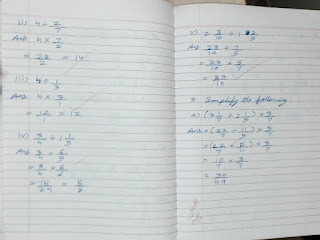 ii) 4 ÷ 2/7
Ans 4 × 7/2
= 28/2 = 14
iii) 4 ÷ 1/3
Ans 4 × 3/1
= 12/1 = 12
iv) 3/4 ÷ 1 1/5
Ans 3/4 ÷ 6/5
= 3/4 × 5/6
= 15/24 = 5/8
v) 2 3/10 ÷ 1 2/5
Ans 23/10 ÷ 7/5
= 23/10 × 5/7
= 23/14
3. Simplify the following
a) (3 1/7 ÷ 2 1/5) × 3/7
Ans = (22/7 ÷ 11/5) × 3/7
= (22/7 × 5/11) × 3/7
= 10/7 × 3/7
= 30/49